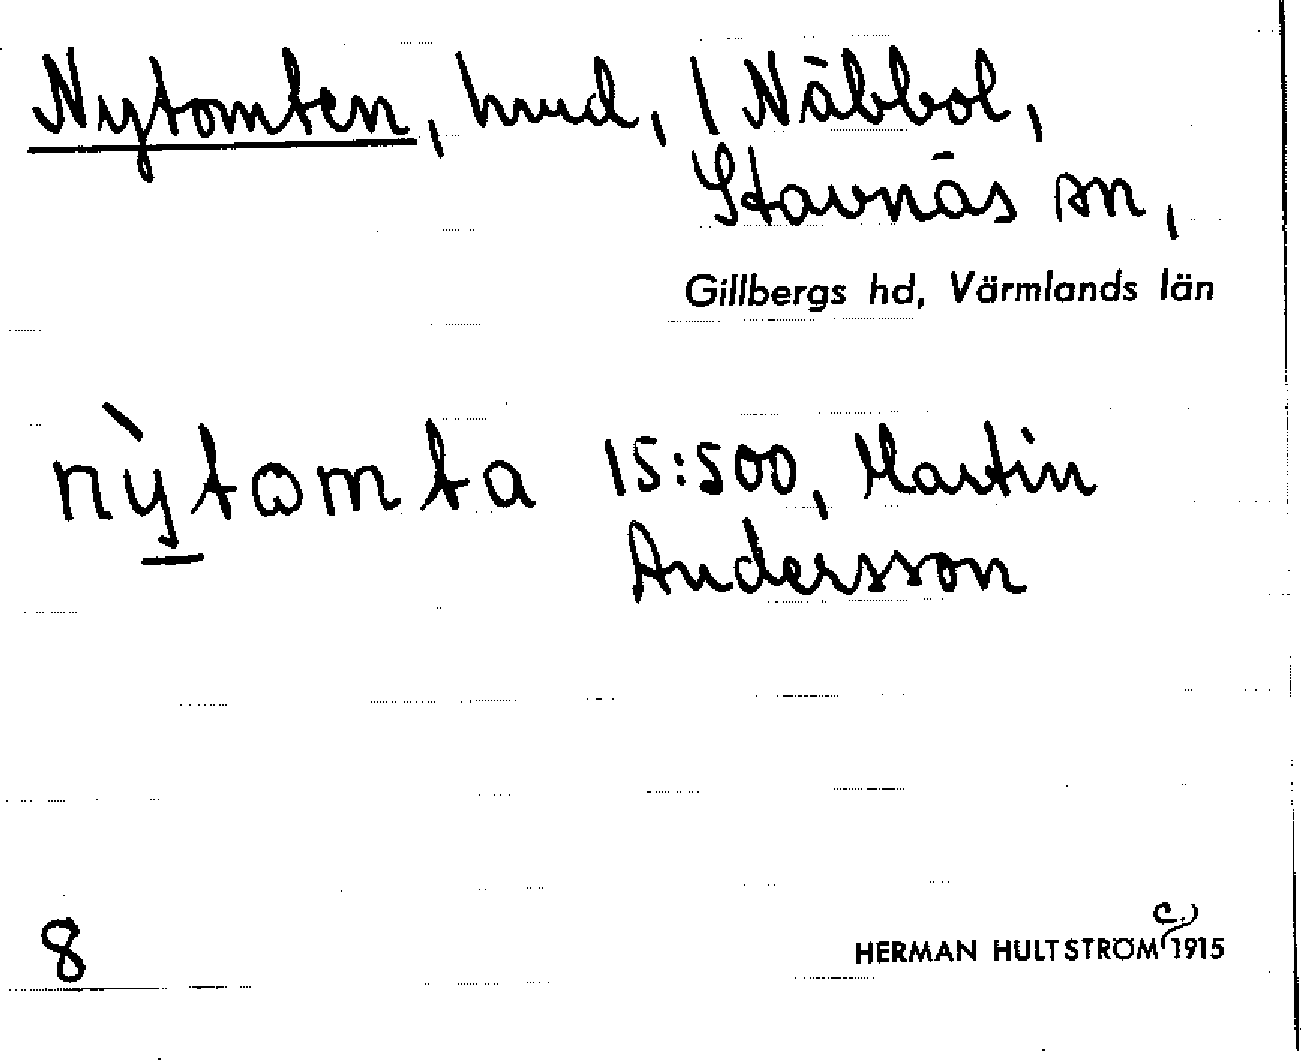 Nytomten, hmd, 1 Näbbol,
Stavnäs sn,
Gillbergs hd, Värmlands län
nỳtɷmta 15:500, Martin
Andersson
8
HERMAN HULTSTRÖM (c.) 1915